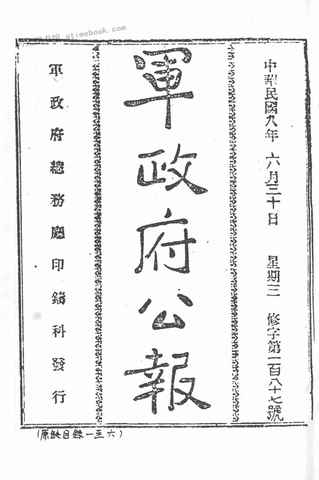 中華民國九年 六月三十日 星期三 修字第一百八十七號
軍政府公報
軍政府總務廳印鑄科發行
(原缺目錄一至六)